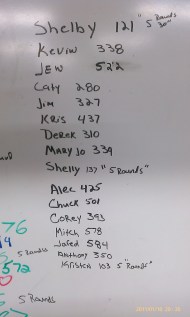 Shelby 121 "5 Rounds 30"
Kevin 338
JEW 522
Caty 280
Jim 327
Kris 437
Derek 310
MARY JO 339
Shelly 137 "5 Rounds"
Alec 425
Chuck 501
Corey 393
Mitch 578
Jared 584
Anthony 350
Kristen 103 5 "Rounds"
76
5 Rounds
572
5 Rounds